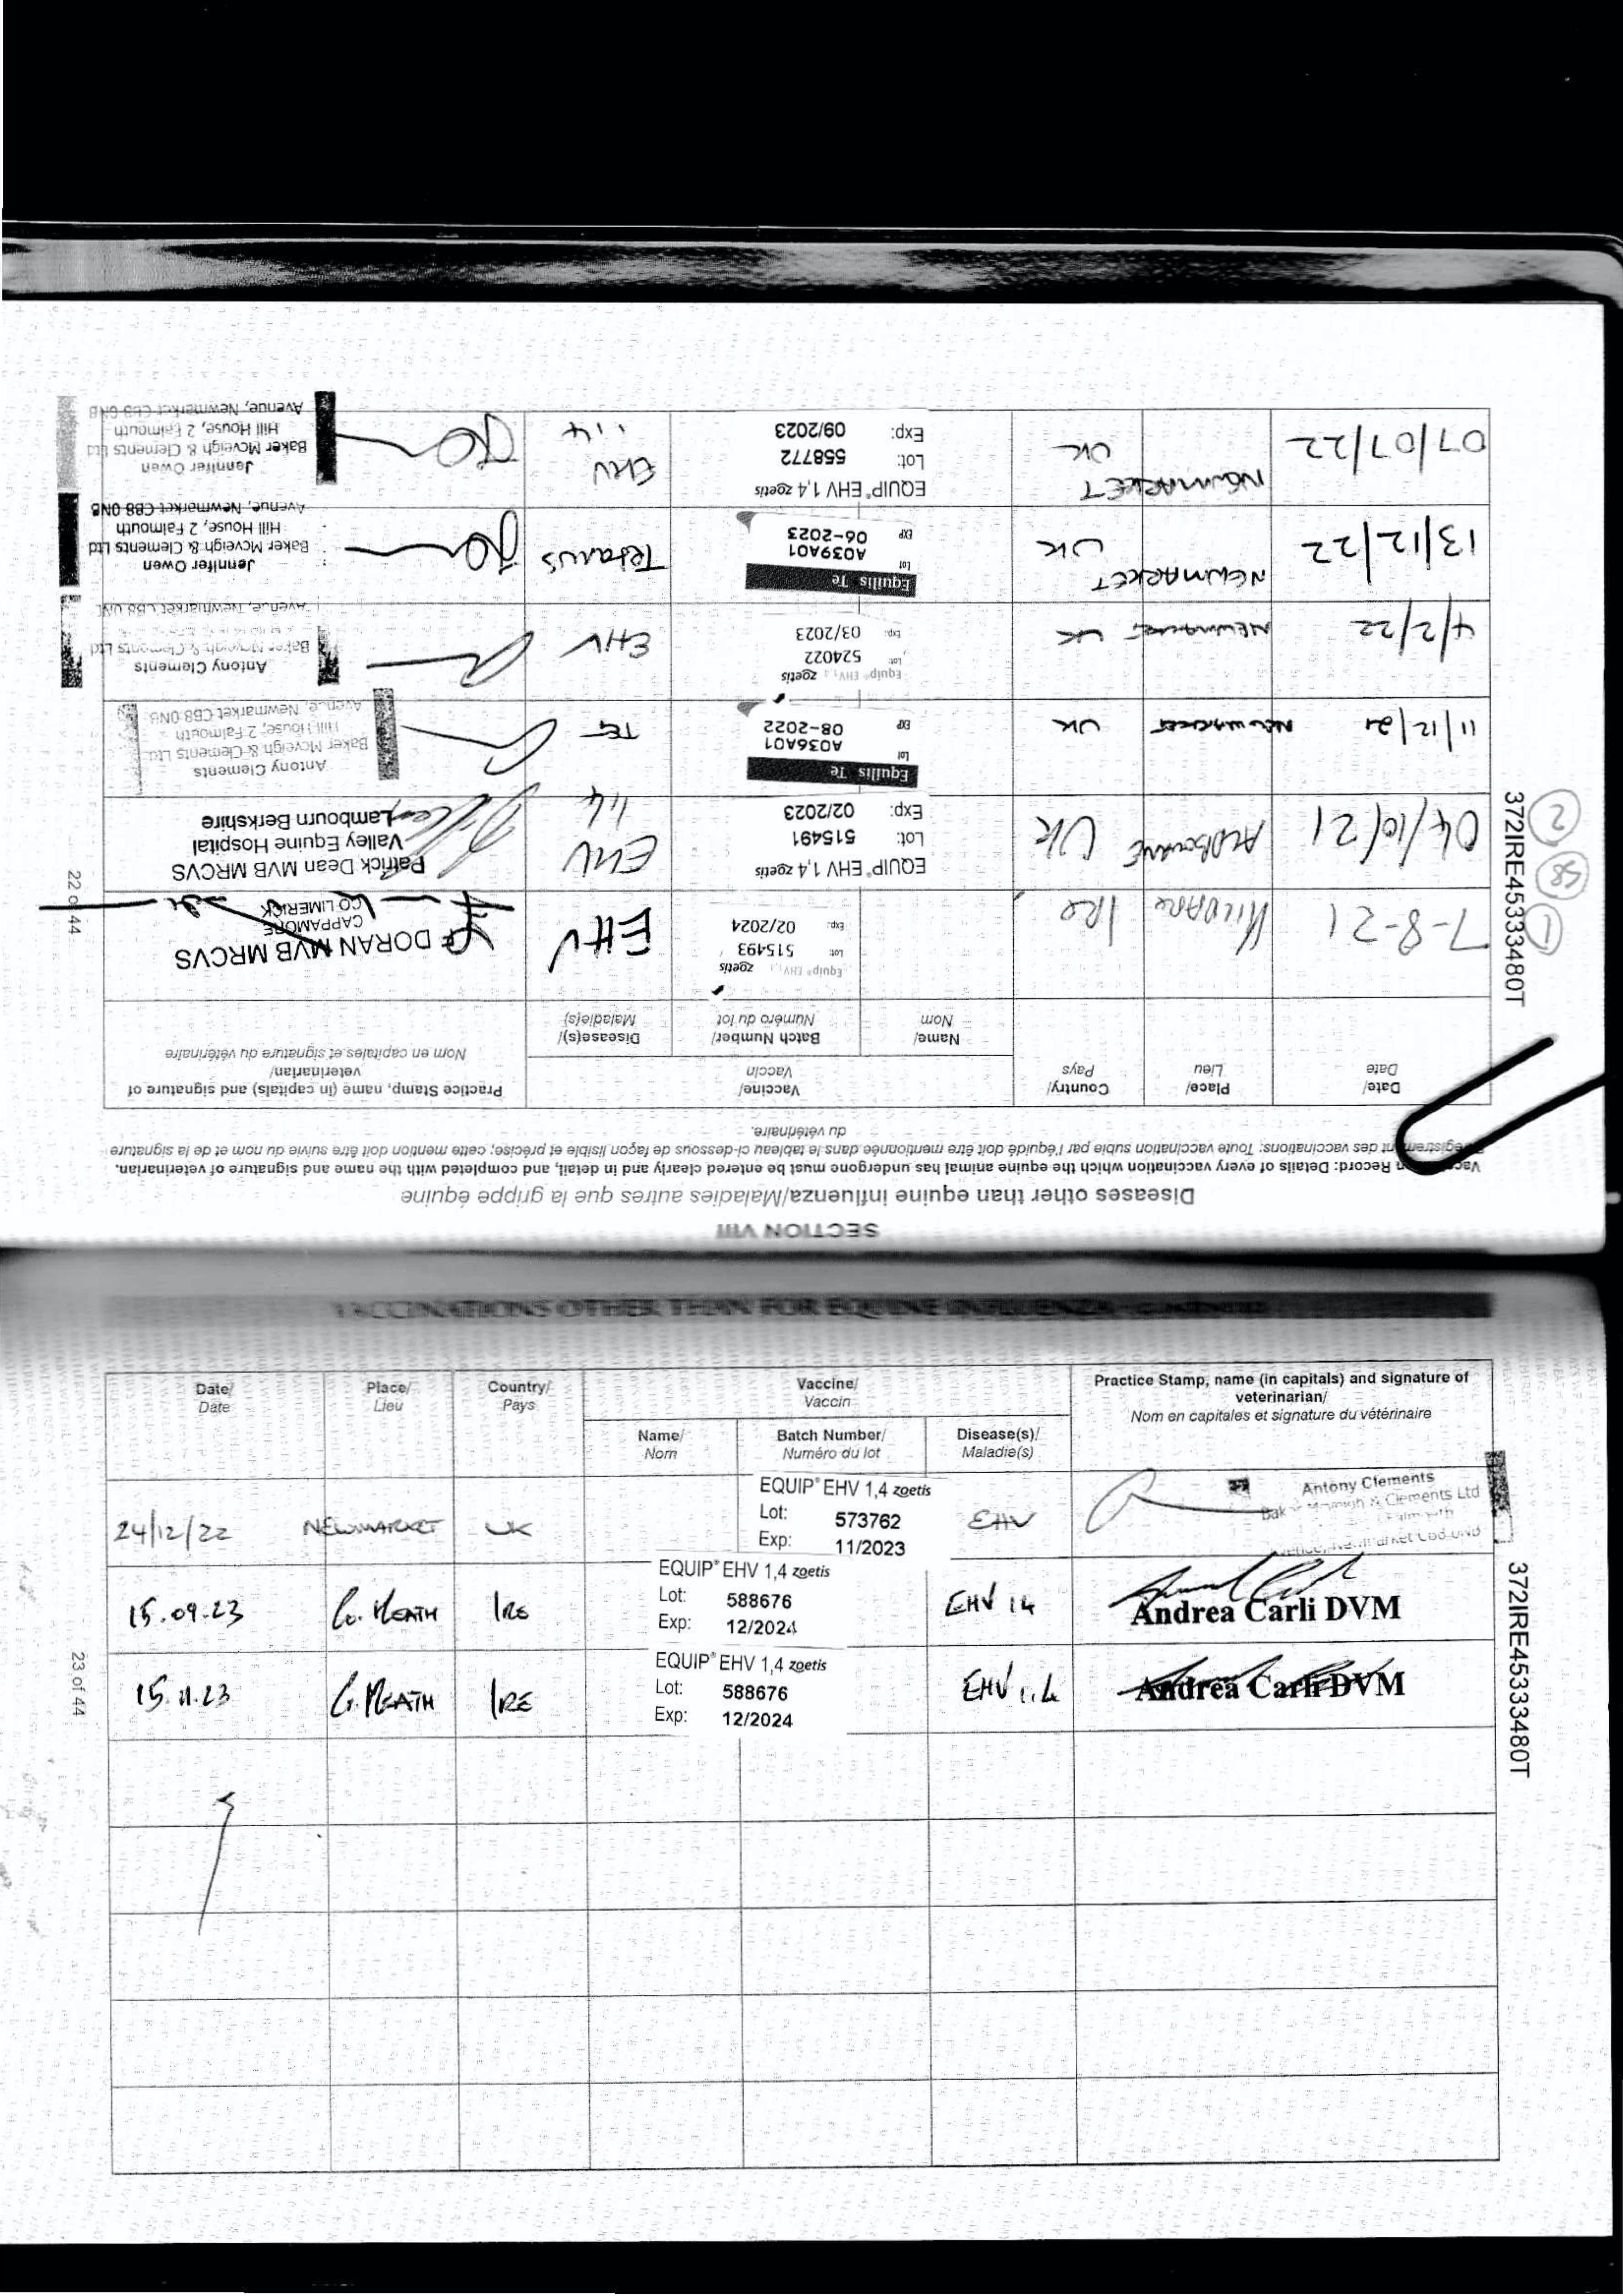 SECTION VIII
Diseases other than equine influenza/Maladies autres que la grippe équine
Record: Details of every vaccination which the equine animal has undergone must be entered clearly and in detail, and completed with the name and signature of veterinarian.
des vaccinations: Toute vaccination subie par l'équidé doit être mentionnée dans le tableau ci-dessous de façon lisible et précise; cette mention doit être suivie du nom et de la signature
du vétérinaire.
Date/ Place/ Country/ Vaccine/ Practice Stamp, name (in capitals) and signature of
Date Lieu Pays Vaccin veterinarian/
Nom en capitales et signature du vétérinaire
Name/ Batch Number/ Disease(s)/
Nom Numéro du lot Maladie(s)
7-8-21 KILDARE IRE
Equip® EHV zoetis
Lot: 515493
Exp: 02/2024
EHV
DORAN MVB MRCVS
CAPPAMORE
CO LIMERICK
04/10/21 ALDBOURNE UK
EQUIP® EHV 1,4 zoetis
Lot: 515491
Exp: 02/2023
EHV
1,4
Patrick Dean MVB MRCVS
Valley Equine Hospital
Lambourn Berkshire
11/12/21 NEWMARKET UK
Equilis Te
Lot A036A01
EXP 08-2022
TET
Antony Clements
Baker Mcveigh & Clements Ltd
Hill House, 2 Falmouth
Avenue, Newmarket CB8 0NB
4/2/22 NEWMARKET UK
Equip® EHV 1,4 zoetis
Lot: 524022
Exp: 03/2023
EHV
Antony Clements
Baker Mcveigh & Clements Ltd
Avenue, Newmarket CB8 0NB
13/12/22 NEWMARKET
UK
Equilis Te
Lot A039A01
EXP 06-2023
Tetanus
Jennifer Owen
Baker Mcveigh & Clements Ltd
Hill House, 2 Falmouth
Avenue, Newmarket CB8 0NB
07/07/22 NEWMARKET
UK
EQUIP® EHV 1,4 zoetis
Lot: 558772
Exp: 09/2023
EHV
1,4
Jennifer Owen
Baker Mcveigh & Clements Ltd
Hill House, 2 Falmouth
Avenue, Newmarket CB8 0NB
372IRE45333480T
1
58
2
22 of 44
VACCINATIONS OTHER THAN FOR EQUINE INFLUENZA
Date/ Place/ Country/ Vaccine/ Practice Stamp, name (in capitals) and signature of
Date Lieu Pays Vaccin veterinarian/
Nom en capitales et signature du vétérinaire
Name/ Batch Number/ Disease(s)/
Nom Numéro du lot Maladie(s)
24/12/22 NEWMARKET UK
EQUIP® EHV 1,4 zoetis
Lot: 573762
Exp: 11/2023
EHV
Antony Clements
Clements Ltd
15.09.23 Co. MEATH IRE
EQUIP® EHV 1,4 zoetis
Lot: 588676
Exp: 12/2024
EHV 1.4
Andrea Carli DVM
15.11.23 Co. MEATH IRE
EQUIP® EHV 1,4 zoetis
Lot: 588676
Exp: 12/2024
EHV 1.4
Andrea Carli DVM
372IRE45333480T
23 of 44